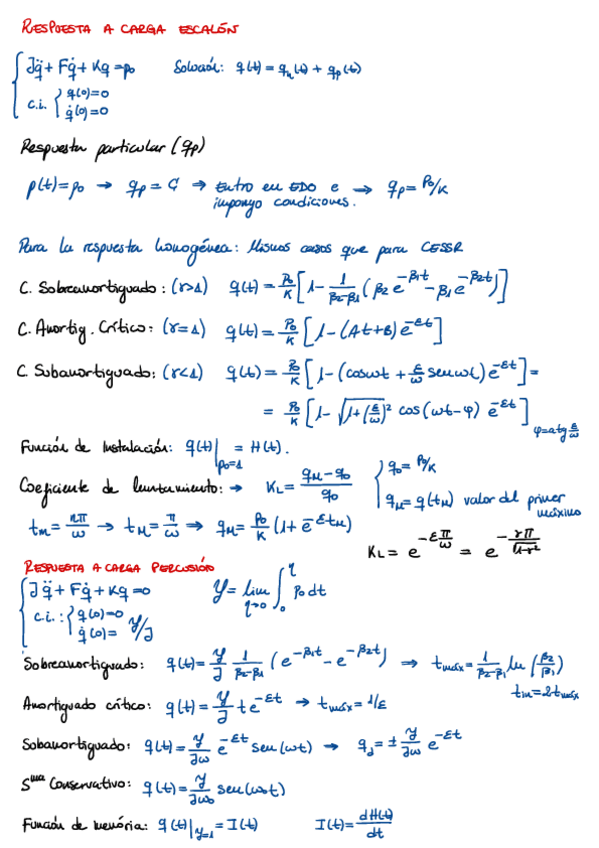 RESPUESTA A CARGA ESCALÓN
Jq̈ + Fq̇ + Kq = p₀ Solución: q(t) = qₕ(t) + qₚ(t)
c.i. { q(0)=0
q̇(0)=0
Respuesta particular (qₚ)
p(t)=p₀ → qₚ = C → Entro en EDO e → qₚ = p₀/K
impongo condiciones.
Para la respuesta homogénea: Mismos casos que para CESSR
C. Sobreamortiguado: (r>1) q(t) = p₀/K [1 - 1/(β₂-β₁) (β₂ e^(-β₁t) - β₁ e^(-β₂t))]
C. Amortig. Crítico: (r=1) q(t) = p₀/K [1 - (At+B) e^(-εt)]
C. Subamortiguado: (r<1) q(t) = p₀/K [1 - (cosωt + ε/ω senωt) e^(-εt)] =
= p₀/K [1 - √(1+(ε/ω)²) cos(ωt-φ) e^(-εt)]
φ=atg ε/ω
Función de Instalación: q(t)|p₀=1 = H(t).
Coeficiente de lanzamiento: → K_L = (q_M - q₀)/q₀ { q₀ = p₀/K
q_M = q(t_M) valor del primer
máximo
tₘ = nπ/ω → t_M = π/ω → q_M = p₀/K (1 + e^(-εt_M))
K_L = e^(-επ/ω) = e^(-rπ/√(1-r²))
RESPUESTA A CARGA PERCUSIÓN
Jq̈ + Fq̇ + Kq = 0 Y = lim η→0 ∫₀^η p₀ dt
c.i.: { q(0)=0
q̇(0)= Y/J
Sobreamortiguado: q(t) = Y/J 1/(β₂-β₁) (e^(-β₁t) - e^(-β₂t)) → tmáx = 1/(β₂-β₁) ln(β₂/β₁)
tᵢₙ = 2tmáx
Amortiguado crítico: q(t) = Y/J t e^(-εt) → tmáx = 1/ε
Subamortiguado: q(t) = Y/Jω e^(-εt) sen(ωt) → q_d = ± Y/Jω e^(-εt)
Sᵐᵃ Conservativo: q(t) = Y/Jω₀ sen(ω₀t)
Función de memória: q(t)|Y=1 = I(t) I(t) = dH(t)/dt